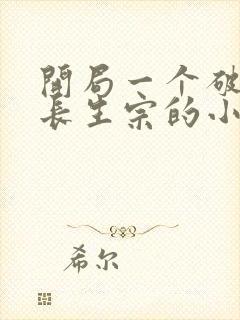 開局一个破
長生宗的小
希尔